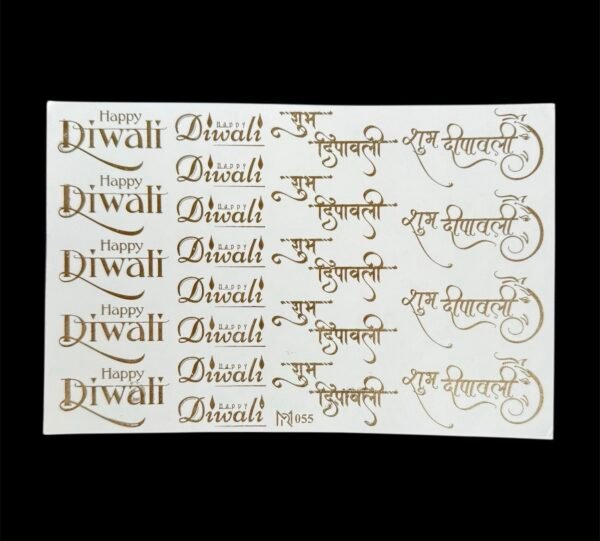 Happy
Diwali
Happy
Diwali
Happy
Diwali
Happy
Diwali
Happy
Diwali
HAPPY
Diwali
HAPPY
Diwali
HAPPY
Diwali
HAPPY
Diwali
HAPPY
Diwali
HAPPY
Diwali
HAPPY
Diwali
HAPPY
Diwali
शुभ
दिपावली
शुभ
दिपावली
शुभ
दिपावली
शुभ
दिपावली
शुभ
दिपावली
055
शुभ दीपावली
शुभ दीपावली
शुभ दीपावली
शुभ दीपावली